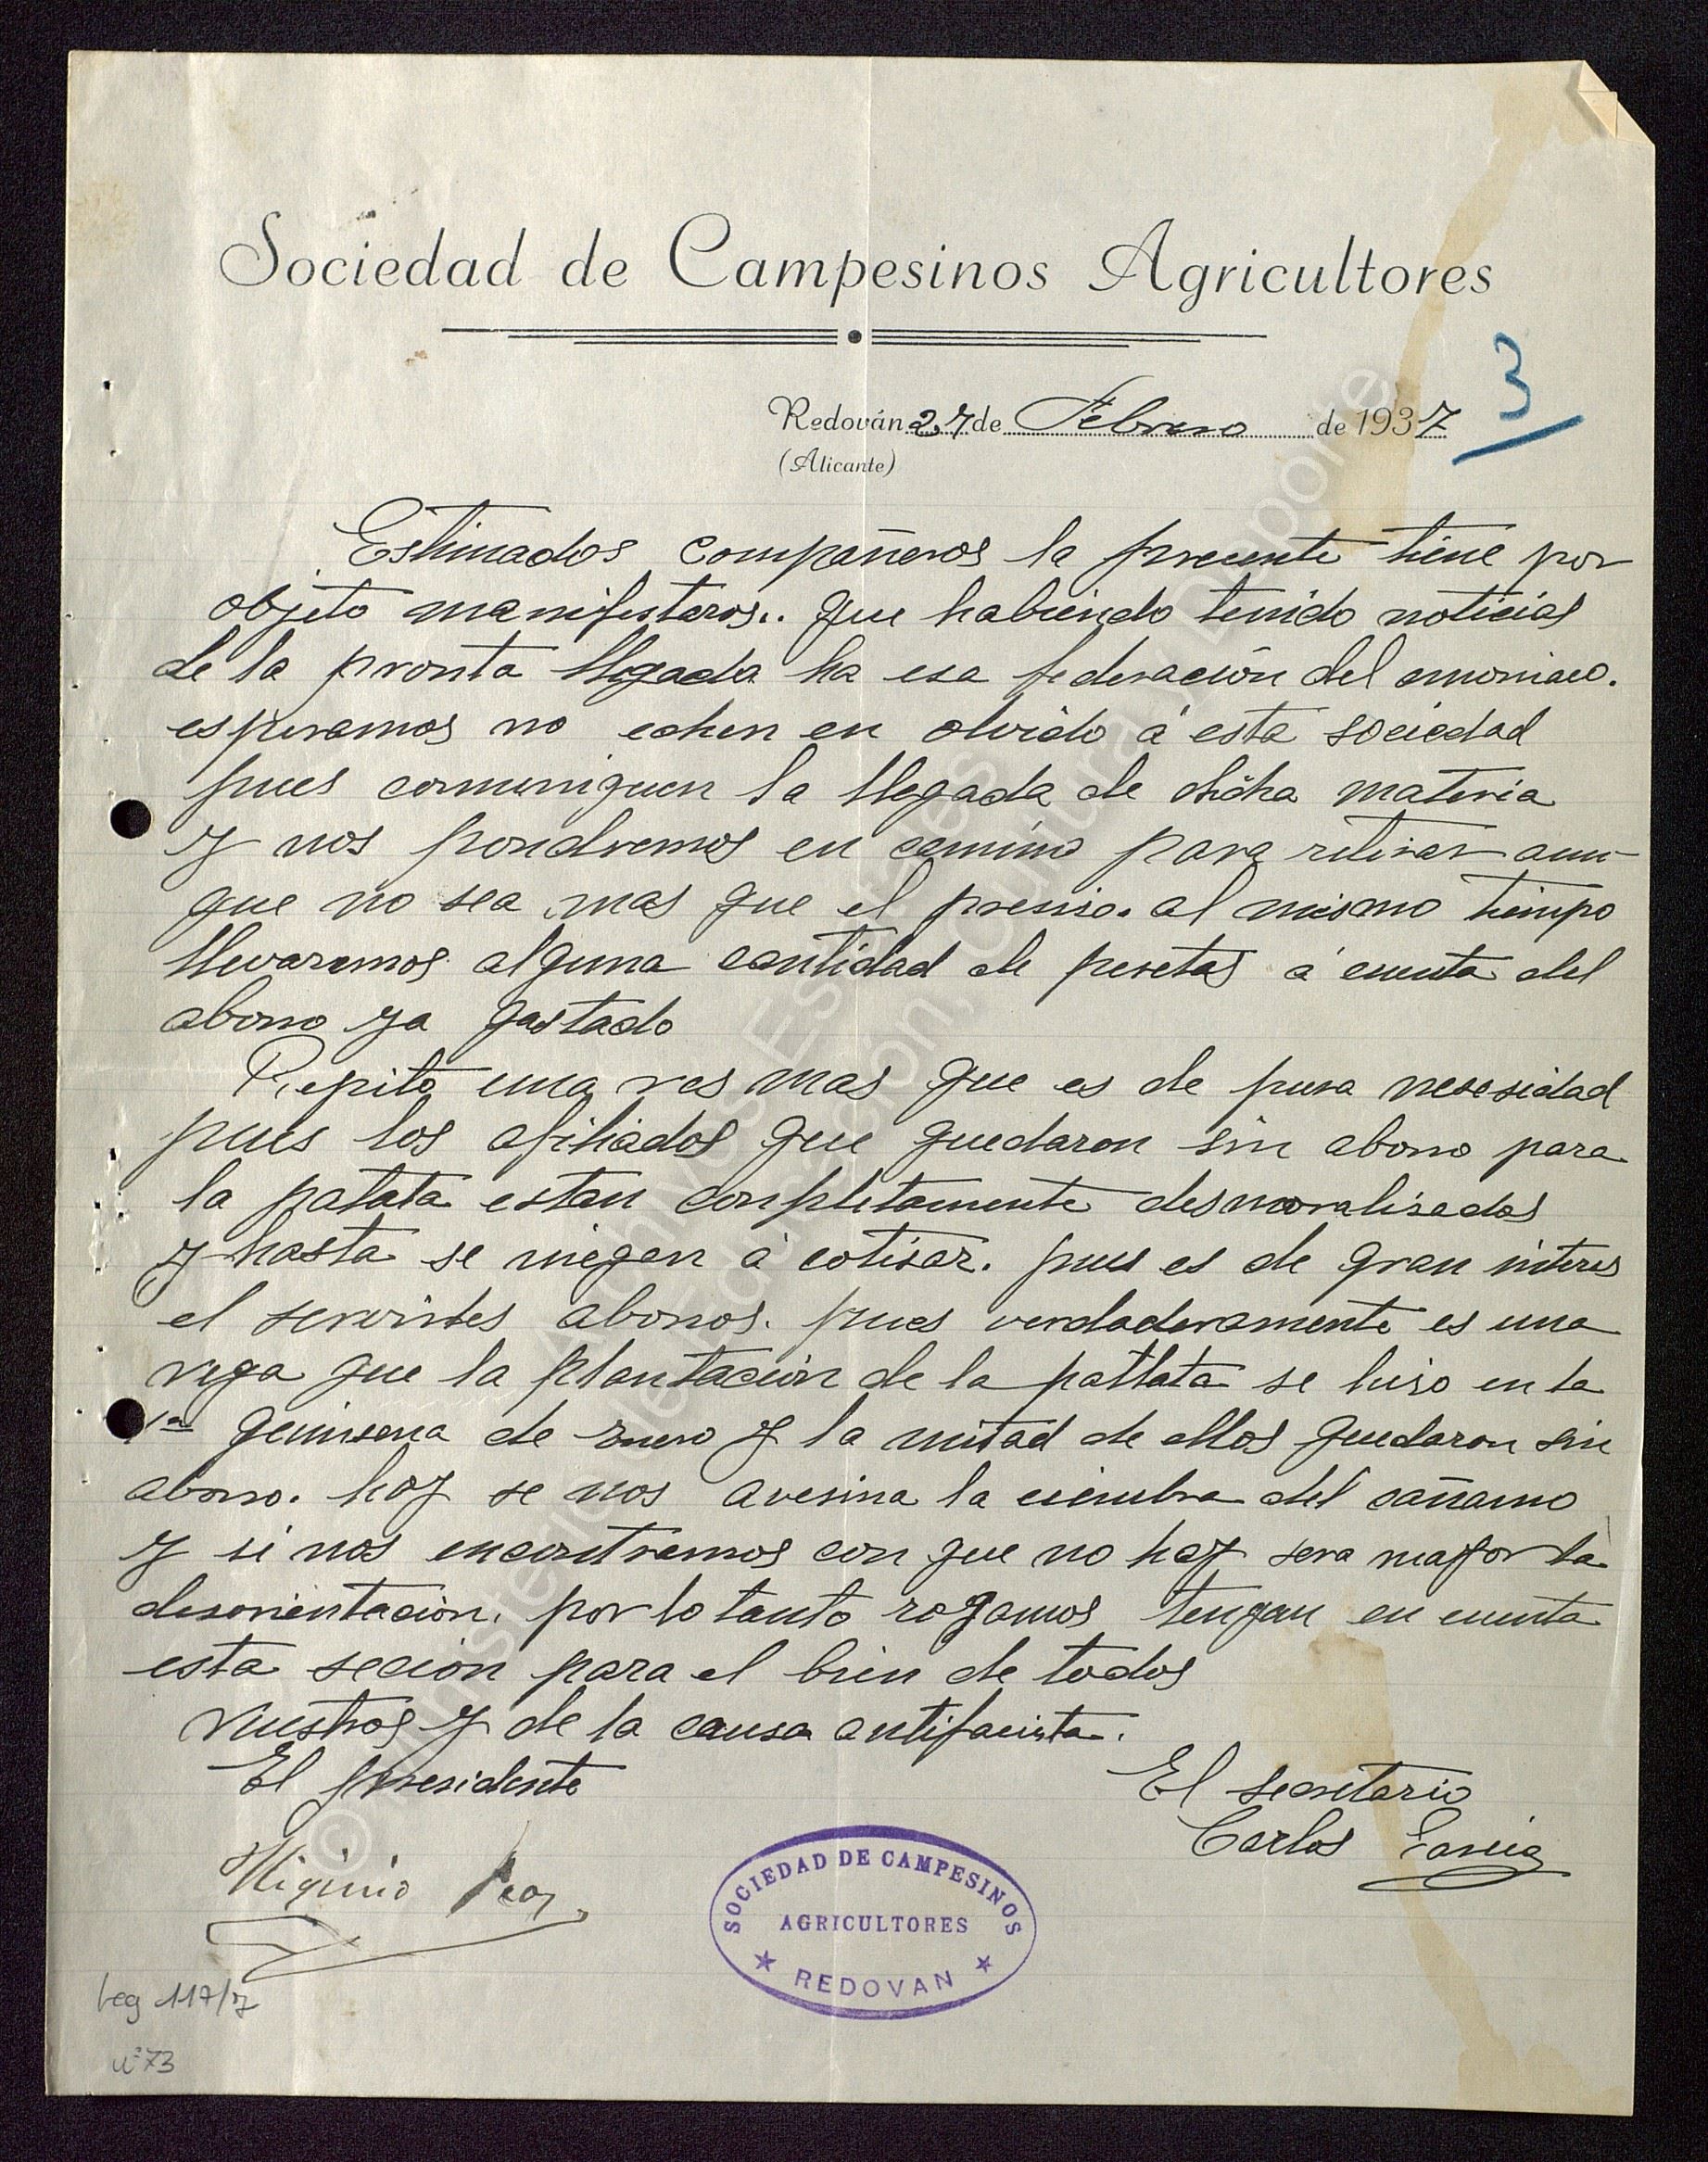 Sociedad de Campesinos Agricultores
3
Redován 27 de Febrero de 1937
(Alicante)
Estimados compañeros la precente tiene por
objeto manifestaros.. que habiendo tenido noticias
de la pronta llegada ha esa federación del amoniaco.
esperamos no echen en olvido á esta sociedad
pues comuniquen la llegada de dicha materia
y nos pondremos en camino para retirar aun-
que no sea mas que el presiso. al mismo tiempo
llevaremos alguna cantidad de pesetas á cuenta del
abono ya gastado
Repito una ves mas que es de pura nesesidad
pues los afiliados que quedaron sin abono para
la patata estan conpletamente desmoralisados
y hasta se niegan á cotisar. pues es de gran interes
el servirles abonos. pues verdaderamente es una
vega que la plantación de la pattata se hiso en la
1ª quinsena de Enero y la mitad de ellos quedaron sin
abono. hoy se nos avesina la ciembra del cañamo
y si nos encontramos con que no hay sera mayor la
desorientación. por lo tanto rogamos tengan en cuenta
esta seción para el bien de todos
vuestros y de la causa antifacista.
El presidente
El secretario
Higinio
Carlos Garcia
SOCIEDAD DE CAMPESINOS
AGRICULTORES
REDOVAN
Leg 117/7
nº 73
© Ministerio de Educación, Cultura y Deporte
Archivos Estatales